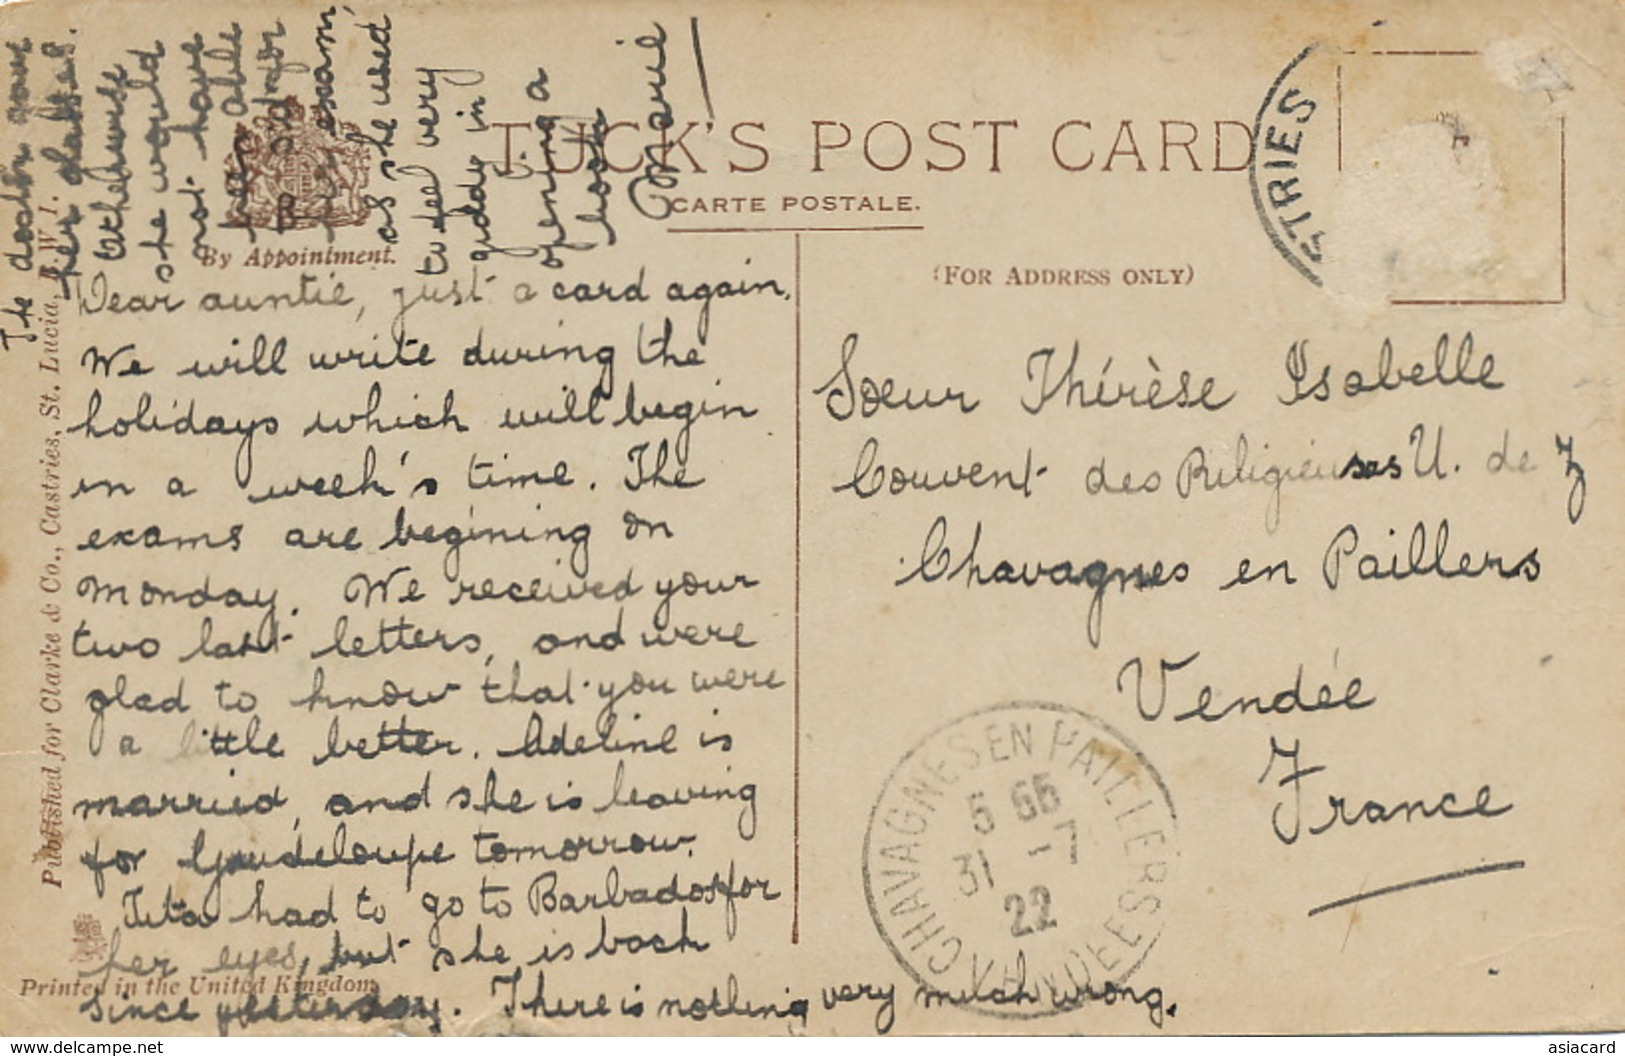 TUCK'S POST CARD
CARTE POSTALE.
By Appointment.
(FOR ADDRESS ONLY)
Published for Clarke & Co., Castries, St. Lucia, B.W.I.
Printed in the United Kingdom
Dear auntie, just a card again.
We will write during the
holidays which will begin
in a week's time. The
exams are begining on
monday. We received your
two last letters, and were
glad to know that you were
a little better. Adeline is
married, and she is leaving
for Guadeloupe tomorrow.
had to go to Barbados for
her eyes, but she is back
since yesterday. There is nothing very much wrong.
The doctor gave
her glasses.
otherwise
she would
not have
been able
to sit for
her exam,
as she used
to feel very
giddy in
opening a
book.
Marie
Sœur Thérèse Isabelle
Couvent des Religieuses U. de J
Chavagnes en Paillers
Vendée
France
STRIES
CHAVAGNES EN PAILLERS
VENDEE
5 55
31 -7
22
https://www.delcampe.net
asiacard